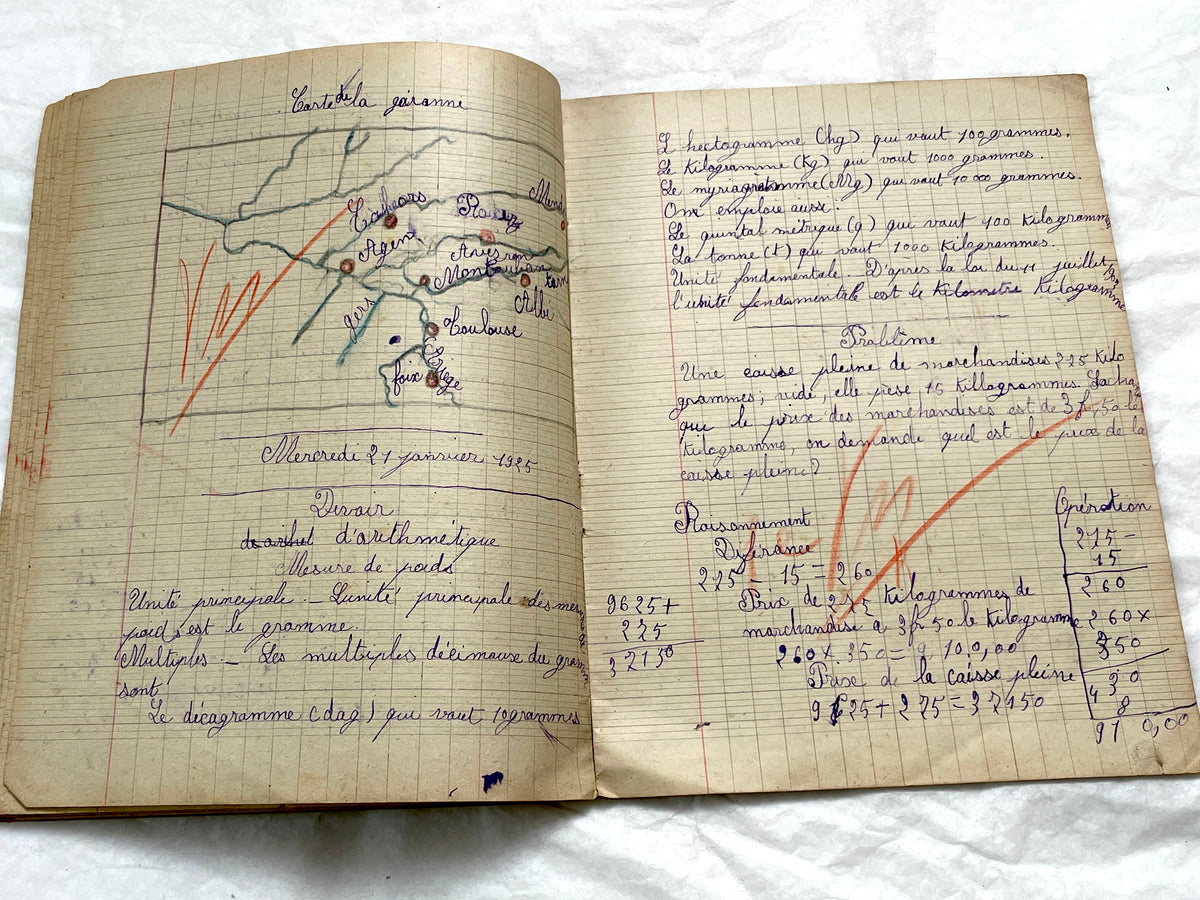 Carte de la garanne
Cahors
Rodez
Mende
Agen
Aveyron
Montauban
tarn
Albi
gers
Toulouse
Ariège
foix
Mercredi 21 janvier 1925
Devoir
d'arithmétique
Mesure de poids
Unité principale. _ L'unité principale des mesures
poids est le gramme.
Multiples _ Les multiples décimause du gramm
sont
Le décagramme (dag) qui vaut 10grammes
L hectogramme (hg) qui vaut 100grammes.
Le Kilogramme (Kg) qui vaut 1000 grammes.
Le myriagramme (Mg) qui vaut 10 000 grammes.
On emploie aussi:
Le quintal métrique (q) qui vaut 100 Kilogramme
La tonne (t) qui vaut 1000 Kilogrammes.
Unité fondamentale. D'après la loi du 11 juillet
l'unité fondamentale est le Kilometre Kilogramme
Problême
Une caisse pleine de marchandises 275 Kilo
grammes; vide, elle pèse 15 Killogrammes. Sachan
que le prix des marchandises est de 3 f,50 le
Kilogramme, on demande quel est le prix de la
caisse pleine?
Raisonnement
Opération
Diférance
275 -
15
275 - 15 = 260
260
Prix de 275 Kilogrammes de
9625+
260x
marchandise a 3fr 50 le Kilogramme
275
350
260 x 350 = 9 100,00
32150
Prix de la caisse pleine
9625 + 275 = 32150
910,00
Vu
Vu